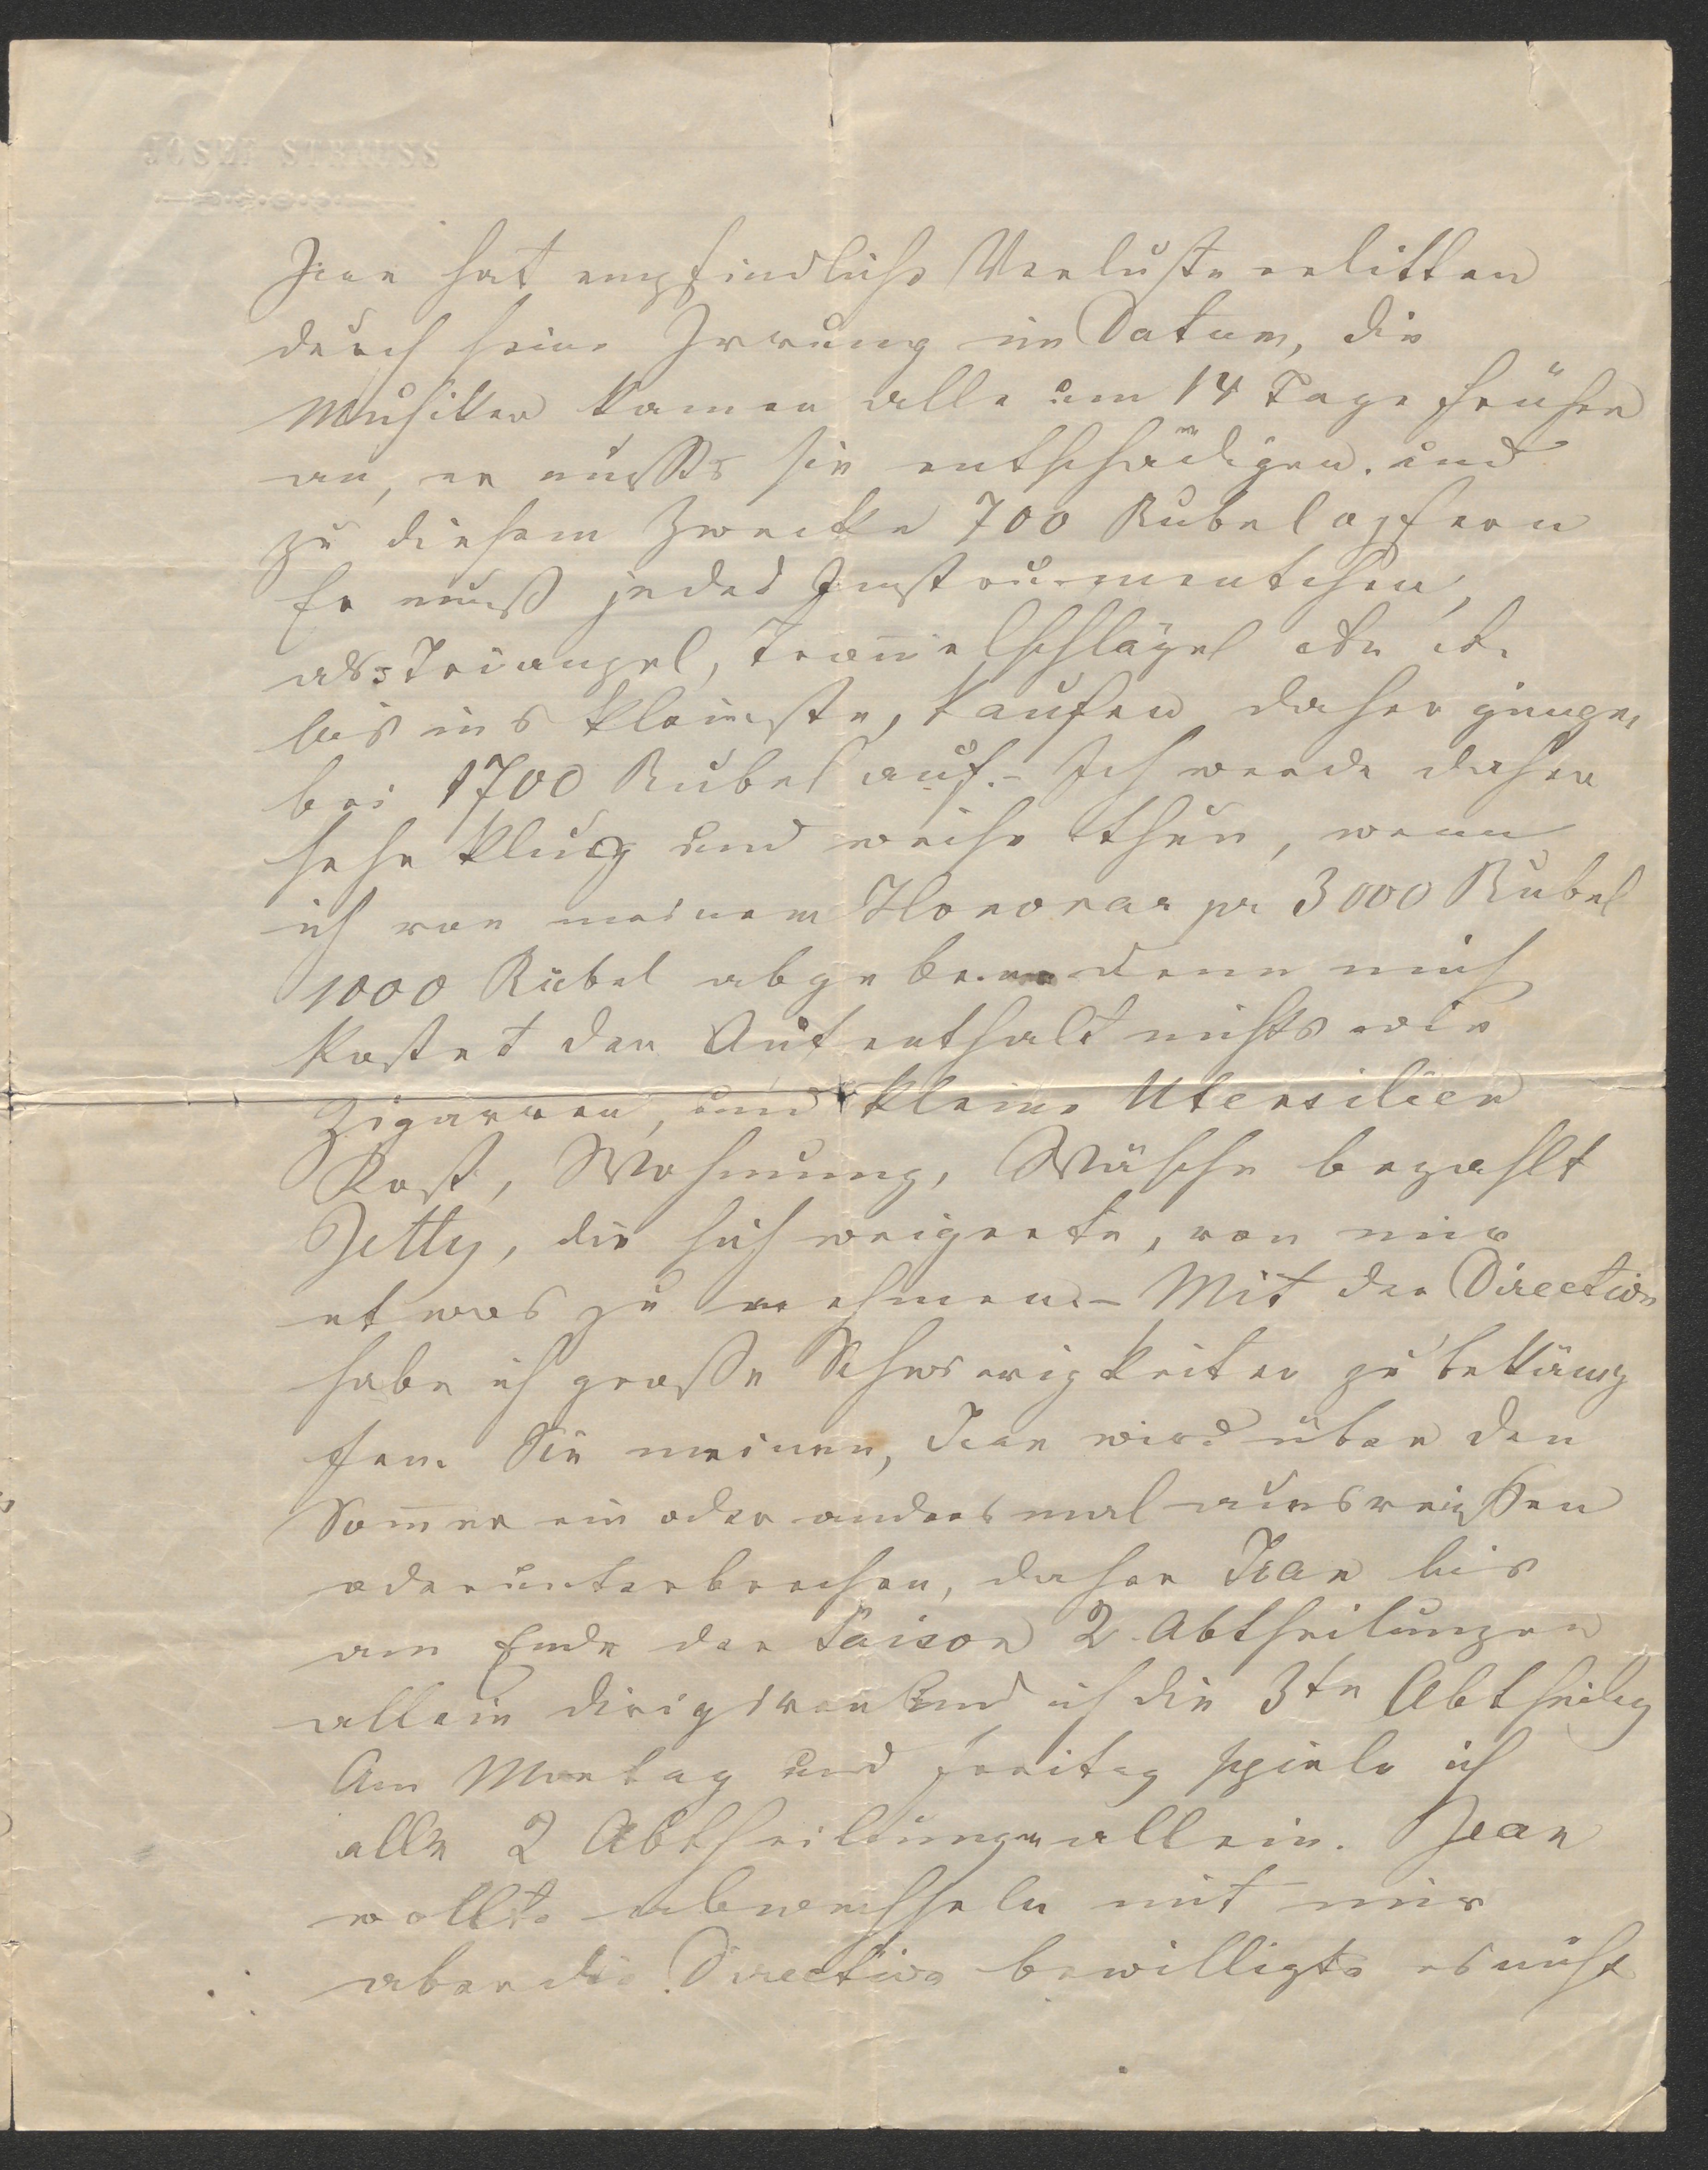 JOSEF STRAUSS
Jean hat empfindliche Verluste erlitten
durch seine Irrung im Datum, die
Musiker kamen alle um 14 Tage früher
an, er mußte sie entschädigen. und
zu diesem Zwecke 700 Rubel opfern
Er muß jedes Instrumentchen,
als: Triangel, Tromelschlägel etc etc
bis ins kleinste, kaufen daher gingen
bei 1700 Rubel auf. – Ich werde daher
sehr klug und weise thun, wenn
ich von meinem Honorar pr 3000 Rubel
1000 Rubel abgebe. denn mich
kostet der Aufenthalt nichts wie
Zigarren, und kleine Utensilien
Kost, Wohnung, Wäsche bezahlt
Jetty, die sich weigerte, von mir
etwas zu nehmen. – Mit der Direction
habe ich große Schwierigkeiten zu bekämp
fen. Sie meinen, Jean wird über den
Sommer ein oder andersmal ausreißen
oder unterbrechen, daher Jean bis
am Ende der Saison 2 Abtheilungen
allein dirigiren und ich die 3te Abtheilung
Am Montag und Freitag spiele ich
alle 2 Abtheilungen allein. Jean
wollte abwechseln mit mir
aber die Direction bewilligte es nicht